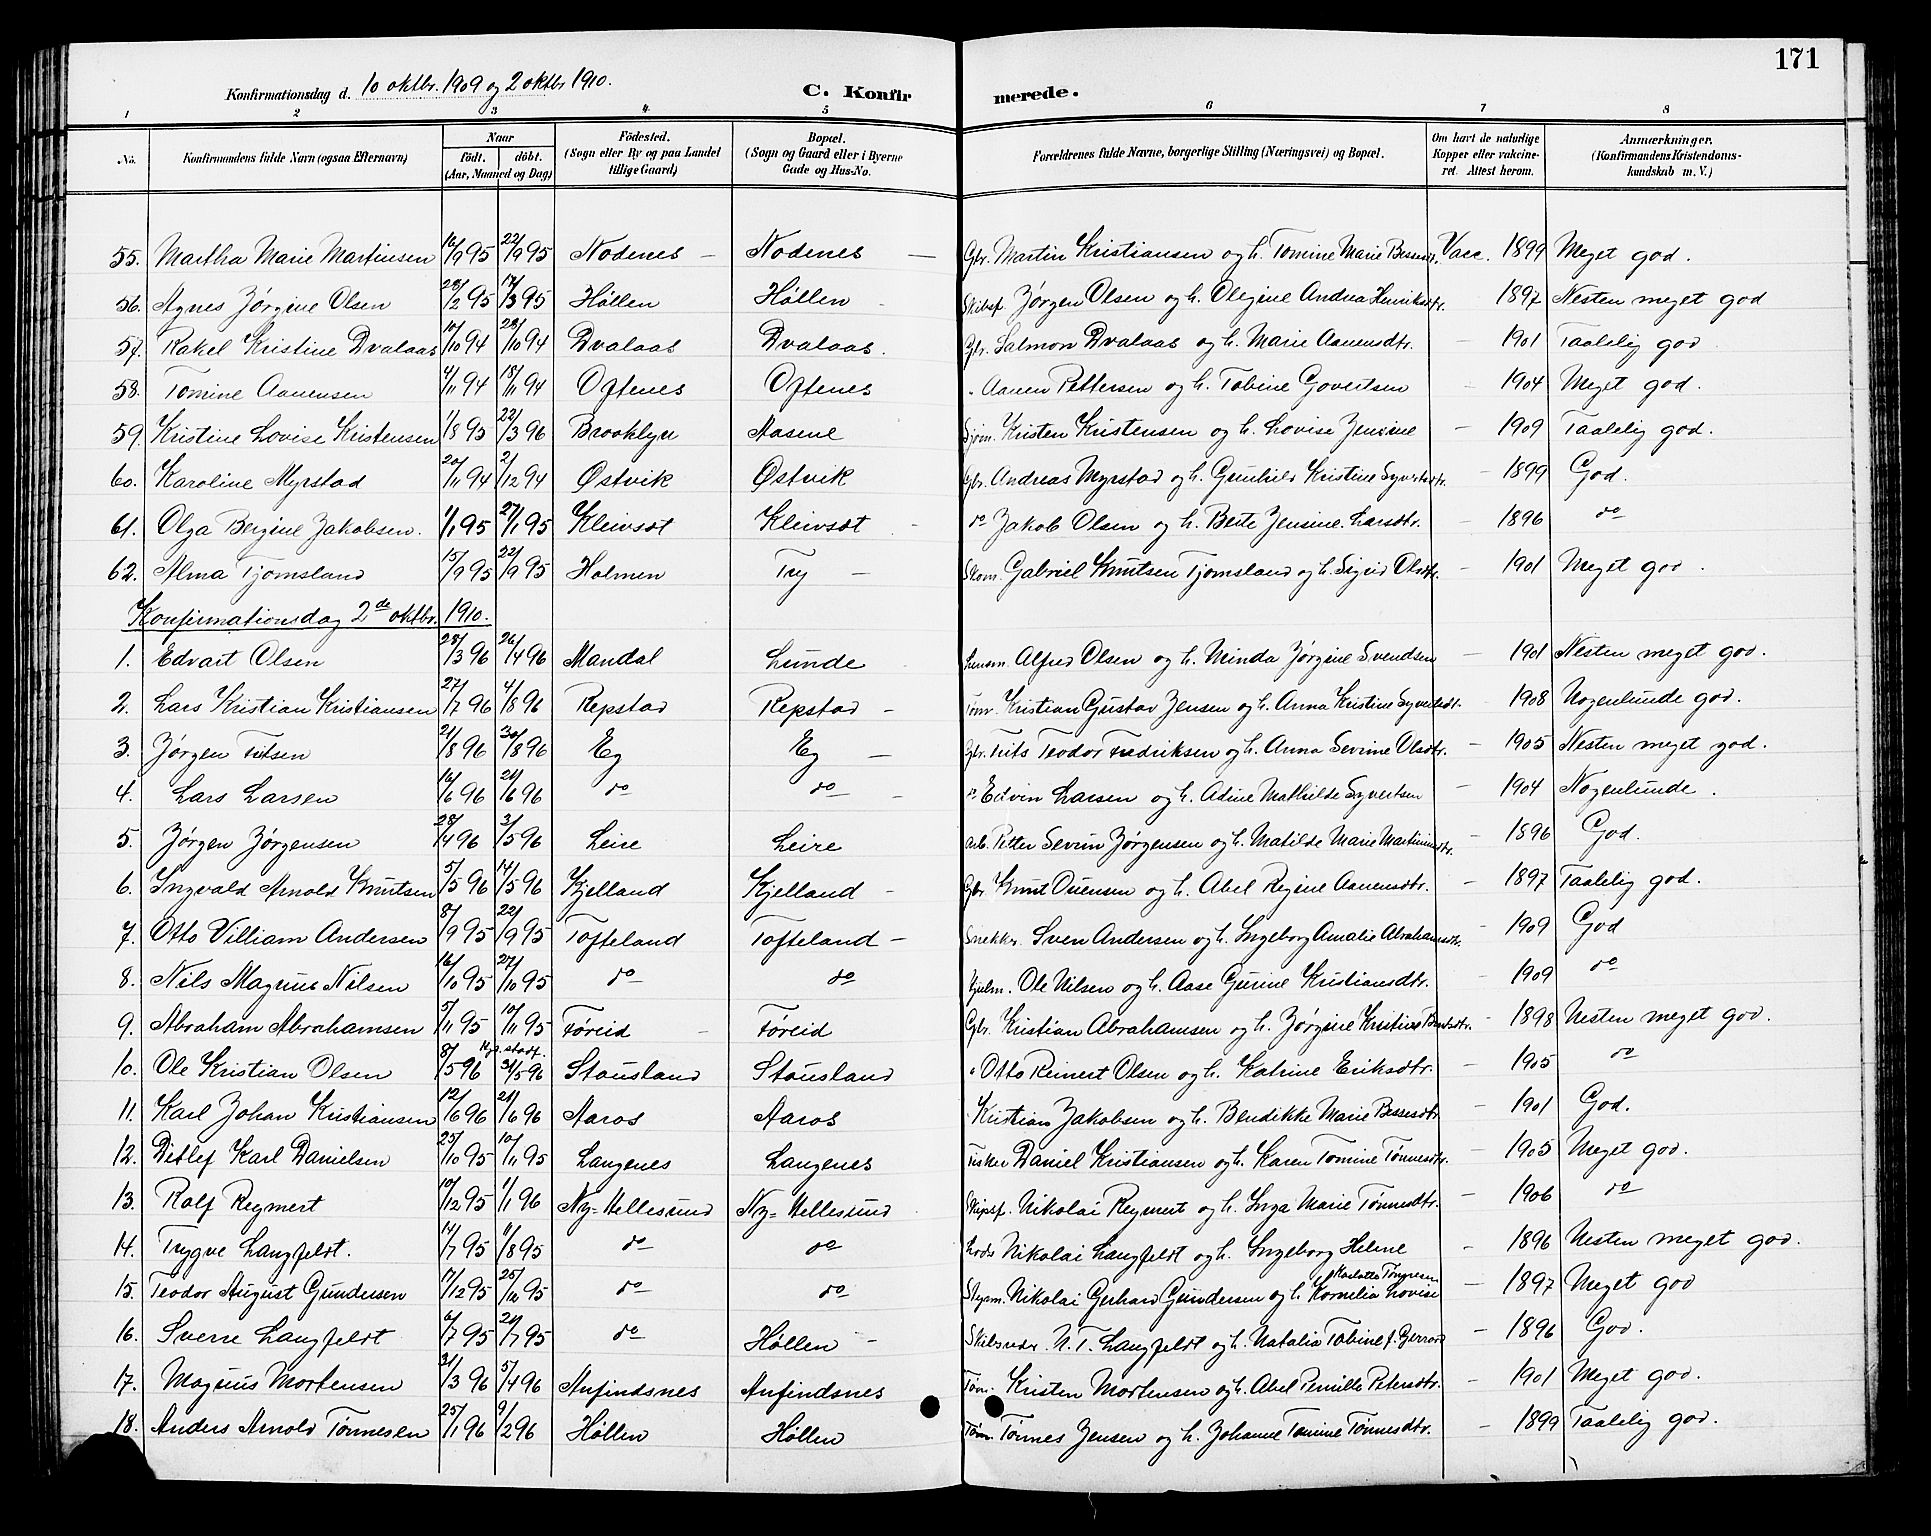 171
Konfirmationsdag d. 10 oktbr. 1909 og 2 oktbr 1910.
C. Konfirmerede.
1 2 3 4 5 6 7 8
No. Konfirmandens fulde Navn (ogsaa Efternavn) Naar födt. döbt. (Aar, Maaned og Dag) Födested. (Sogn eller By og paa Landet tillige Gaard) Bopæl. (Sogn og Gaard eller i Byerne Gade og Hus-No. Forældrenes fulde Navne, borgerlige Stilling (Næringsvei) og Bopæl. Om havt de naturlige Kopper eller vakcineret. Attest herom. Anmærkninger. (Konfirmandens Kristendomskundskab m. V.)
55. Martha Marie Martinsen 16/9 95 22/9 95 Nodenes – Nodenes – Gbr. Martin Kristiansen og h. Tomine Marie Bessesdtr. Vacc. 1899 Meget god.
56. Agnes Jørgine Olsen 28/2 95 17/3 95 Høllen Høllen Skibsf. Jørgen Olsen og h. Olegine Andrea Henriksdtr. 1897 Nesten meget god
57. Rakel Kristine Dvalaas 10/10 94 28/10 94 Dvalaas Dvalaas. Gbr. Salmon Dvalaas og h. Marie Aanensdtr. – 1901 Taalelig god
58. Tomine Aanensen 4/11 94 18/11 94 Oftenes Oftenes " Aanen Pettersen og h. Tobine Govertsen – 1904 Meget god.
59. Kristine Lovise Kristensen 1/8 95 22/3 96 Brooklyn Aasene Sjøm. Kristen Kristensen og h. Lovise Jensine – 1909 Taalelig god.
60. Karoline Myrstad 20/11 94 2/12 94 Østvik Østvik Gbr. Andreas Myrstad og h. Gunhild Kristine Syvertsdtr. – 1899 God.
61. Olga Bergine Jakobsen. 1/1 95 27/1 95 Kleivset Kleivset do Jakob Olsen og h. Berte Jensine Larsdtr. – 1896 do
62. Alma Tjomsland 15/9 95 22/9 95 Holmen Try – Skom. Gabriel Knutsen Tjomsland og h. Sigrid Olsdtr. – 1901 Meget god.
Konfirmationsdag 2de oktbr. 1910.
1. Edvart Olsen 28/3 96 26/4 96 Mandal Lunde Lensm. Alfred Olsen og h. Minda Jørgine Svendsen – 1901 Nesten meget god.
2. Lars Kristian Kristiansen 27/7 96 4/8 96 Repstad Repstad – Tøm. Kristian Gustav Jensen og h. Anna Kristine Syvertsdt. – 1908 Nogenlunde god.
3. Jørgen Fritsen 21/8 96 30/8 96 Eg Eg – Gbr. Frits Teodor Fredriksen og h. Anna Severine Olsdtr. – 1905 Nesten meget god.
4. Lars Larsen 16/6 96 21/6 96 do do – do Edvin Larsen og h. Adine Mathilde Syvertsen – 1904 Nogenlunde.
5. Jørgen Jørgensen 28/4 96 3/5 96 Leire Leire arb. Petter Severin Jørgensen og h. Matilde Marie Martiniusdtr. – 1896 God.
6. Ingvald Arnold Knutsen 5/5 96 14/5 96 Kjelland Kjelland – Gbr. Knut Ouensen og h. Abel Regine Aanensdtr. – 1897 Taalelig god.
7. Otto Villiam Andersen 8/9 95 22/9 95 Tofteland Tofteland – Snekker. Sven Andersen og h. Ingeborg Amalie Abrahamsdtr. – 1909 God
8. Nils Magnus Nilsen 16/10 95 27/10 95 do do Ole Nilsen og h. Aase Gurine Kristiansdtr. – 1909 do
9. Abraham Abrahamsen 5/11 95 10/11 95 Føreid – Føreid Gbr. Kristian Abrahamsen og h. Jørgine Kristine – 1898 Nesten meget god.
10. Ole Kristian Olsen 8/5 96 Hj. stadf. 31/5 96 Stausland Stausland " Otto Reinert Olsen og h. Katrine Eriksdtr. – 1905 do
11. Karl Johan Kristiansen 12/6 96 21/6 96 Aaros Aaros Kristian Jakobsen og h. Bendikke Marie Bessesdtr. – 1901 God.
12. Ditlef Karl Danielsen 25/10 95 10/11 95 Langenes Langenes Fisker Daniel Kristiansen og h. Karen Tomine Tønnesdtr. – 1905 Meget god.
13. Rolf Regmert 10/12 95 1/1 96 Ny=Hellesund Ny=Hellesund Skipsf. Nikolai Regmert og h. Inga Marie Tønnesdtr. – 1906 do
14. Trygve Langfeldt. 14/7 95 11/8 95 do do Lods Nikolai Langfeldt og h. Ingeborg Helene – 1896 Nesten meget god.
15. Teodor August Gundersen 17/12 95 25/12 95 do do Styrm. Nikolai Gerhard Gundersen og h. Kornelia Lovise – 1897 Meget god
16. Sverre Langfeldt 6/7 95 21/7 95 do Høllen – Skibsreder. N. T. Langfeldt og h. Natalia Tobine f. Gerrard – 1896 God.
17. Magnus Mortensen 31/3 96 5/4 96 Anfindsnes Anfindsnes Tøm. Kristen Mortensen og h. Abel Pernille Petersdtr. – 1901 Meget god.
18. Anders Arnold Tønnesen 25/1 96 9/2 96 Høllen Høllen Tøm. Tønnes Jensen og h. Johanne Tomine Tønnesdtr. – 1899 Taalelig god.